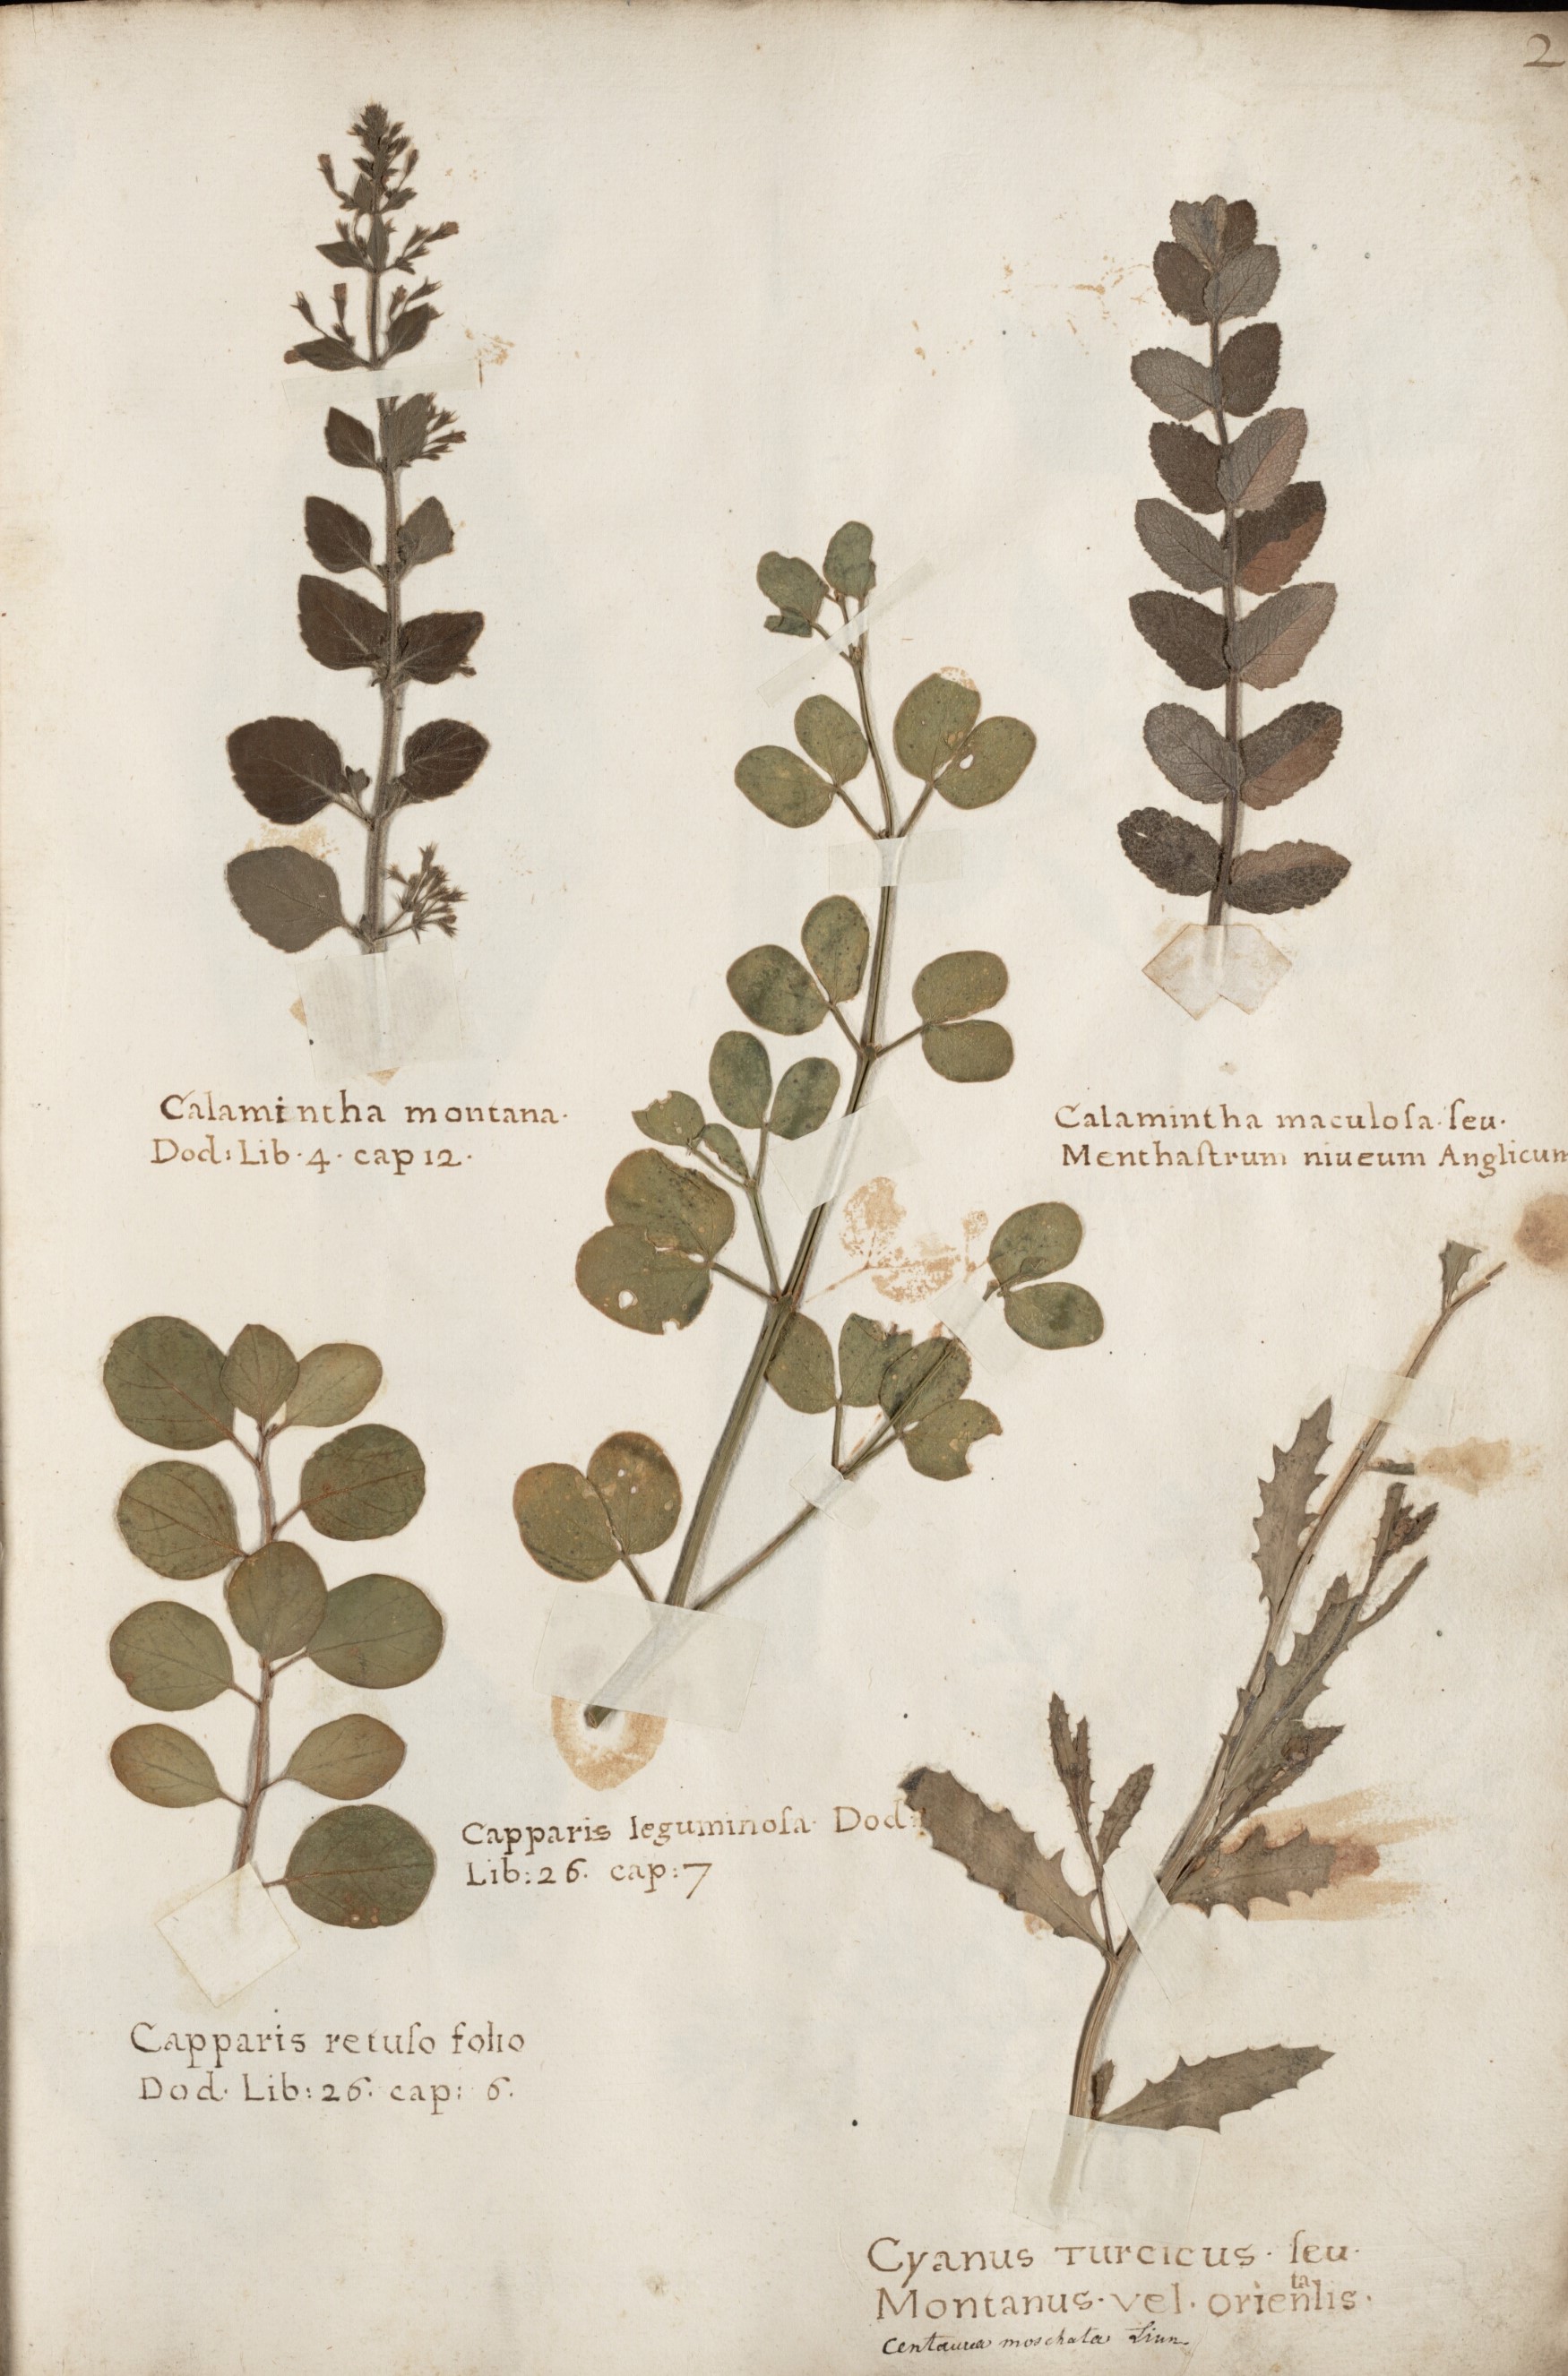 2
Calamintha montana·
Dod: Lib·4· cap 12·
Calamintha maculosa·seu·
Menthastrum niueum Anglicum
Capparis leguminosa· Dod:
Lib: 26· cap: 7
Capparis retuso folio
Dod· Lib: 26· cap: 6·
Cyanus Turcicus· seu·
Montanus· vel· orientalis·
Centaurea moschata Linn.